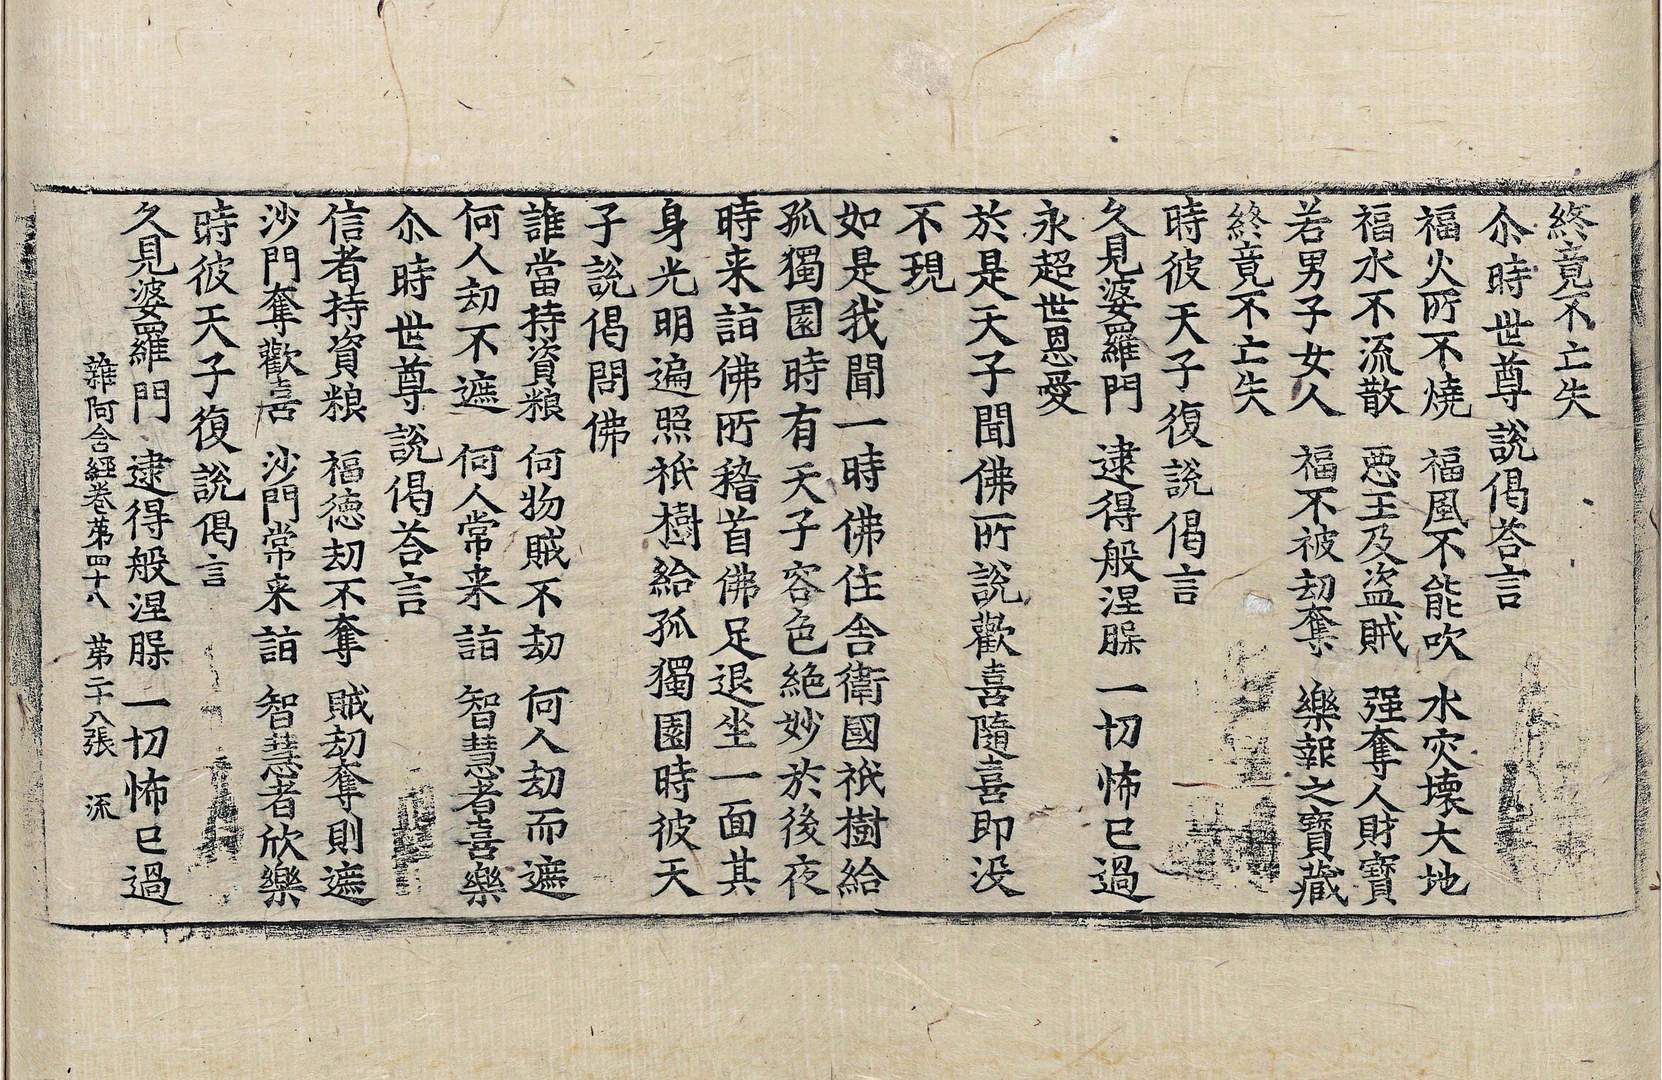 終竟不亡失
尒時世尊說偈荅言
福火所不燒　福風不能吹　水灾壞大地
福水不流散　惡王及盜賊　强奪人財寶
若男子女人　福不被劫奪　樂報之寶藏
終竟不亡失
時彼天子復說偈言
久見婆羅門　逮得般涅槃　一切怖已過
永超世恩愛
於是天子聞佛所說歡喜隨喜即没
不現
如是我聞一時佛住舍衛國祇樹給
孤獨園時有天子容色絶妙於後夜
時来詣佛所稽首佛足退坐一面其
身光明遍照祇樹給孤獨園時彼天
子說偈問佛
誰當持資粮　何物賊不劫　何人劫而遮
何人劫不遮　何人常来詣　智慧者喜樂
尒時世尊說偈荅言
信者持資粮　福德劫不奪　賊劫奪則遮
沙門奪歡喜　沙門常来詣　智慧者欣樂
時彼天子復說偈言
久見婆羅門　逮得般涅槃　一切怖已過
雜阿含經卷苐四十八　苐二十八張　流